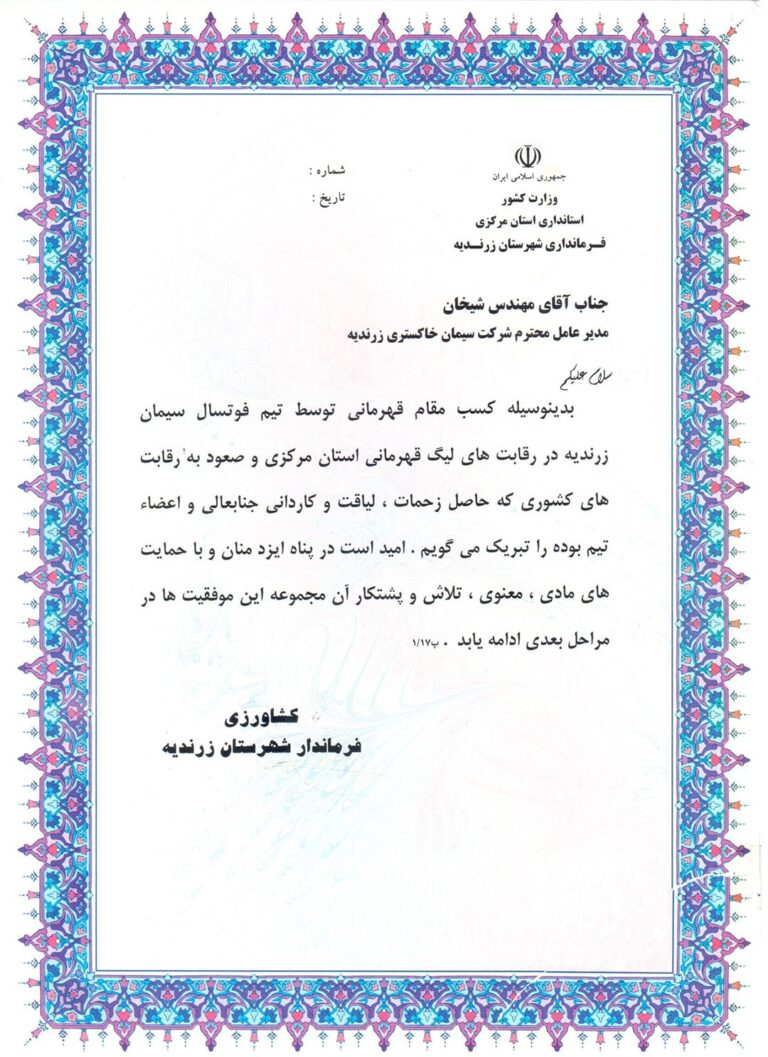 جمهوری اسلامی ایران
وزارت کشور
استانداری استان مرکزی
فـرمانداری شهرستان زرنـدیه
شماره :
تاریخ :
جناب آقای مهندس شیخان
مدیر عامل محترم شرکت سیمان خاکستری زرندیه
سلام علیکم
بدینوسیله کسب مقام قهرمانی توسط تیم فوتسال سیمان
زرندیه در رقابت های لیگ قهرمانی استان مرکزی و صعود به رقابت
های کشوری که حاصل زحمات ، لیاقت و کاردانی جنابعالی و اعضاء
تیم بوده را تبریک می گویم . امید است در پناه ایزد منان و با حمایت
های مادی ، معنوی ، تلاش و پشتکار آن مجموعه این موفقیت ها در
مراحل بعدی ادامه یابد . ب۱/۱۷
کشاورزی
فرماندار شهرستان زرندیه